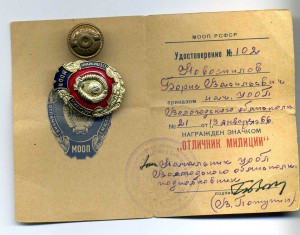 МООП РСФСР
Удостоверение № 102
Новожилов
Борис Васильевич
нач. УООП
приказом Вологодского облисполк.
№ 21 от "13" января 66 г.
НАГРАЖДЕН ЗНАЧКОМ
"ОТЛИЧНИК МИЛИЦИИ"
Начальник УООП
Вологодского облисполк.
подполковник
МООП
МООП